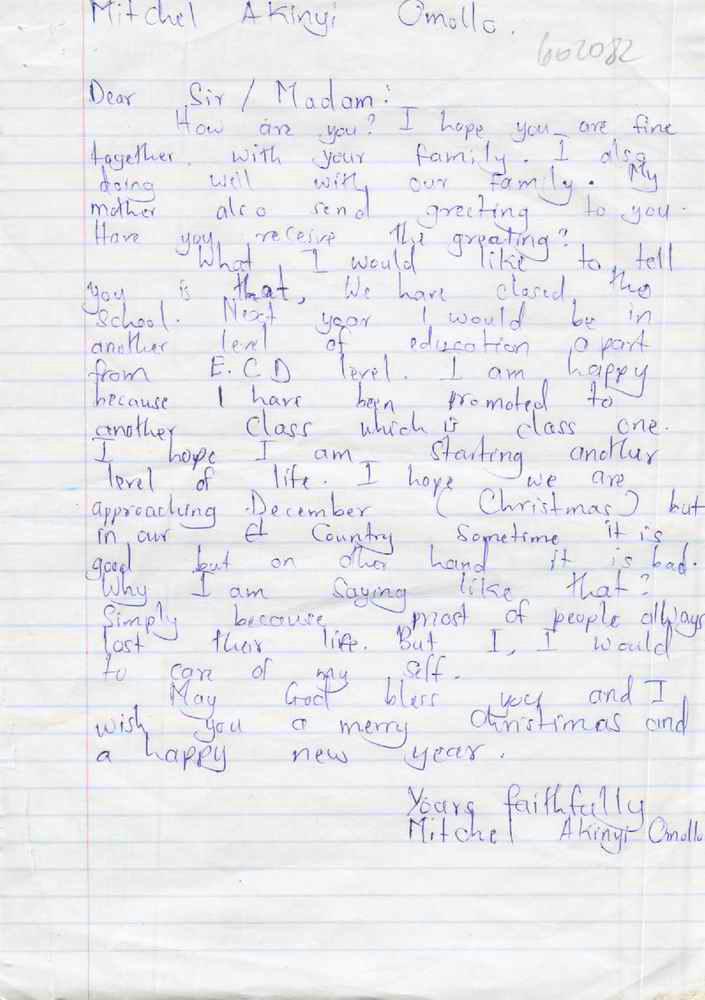 Mitchel Akinyi Omollo.
602082
Dear Sir / Madam:
How are you? I hope you are fine
together with your family. I also
doing well with our family. My
mother also send greeting to you.
Have you receive the greating?
What I would like to tell
you is that, We have closed the
School. Next year I would be in
another level of education apart
from E.C.D level. I am happy
because I have been promoted to
another Class which is class one.
I hope I am starting another
level of life. I hope we are
approaching December (Christmas) but
in our Country Sometime it is
good but on other hand it is bad.
Why I am Saying like that?
Simply because most of people always
lost their life. But I, I would
to care of my self.
May God bless you and I
wish you a merry Christimas and
a happy new year.
Yours faithfully
Mitchel Akinyi Omollo